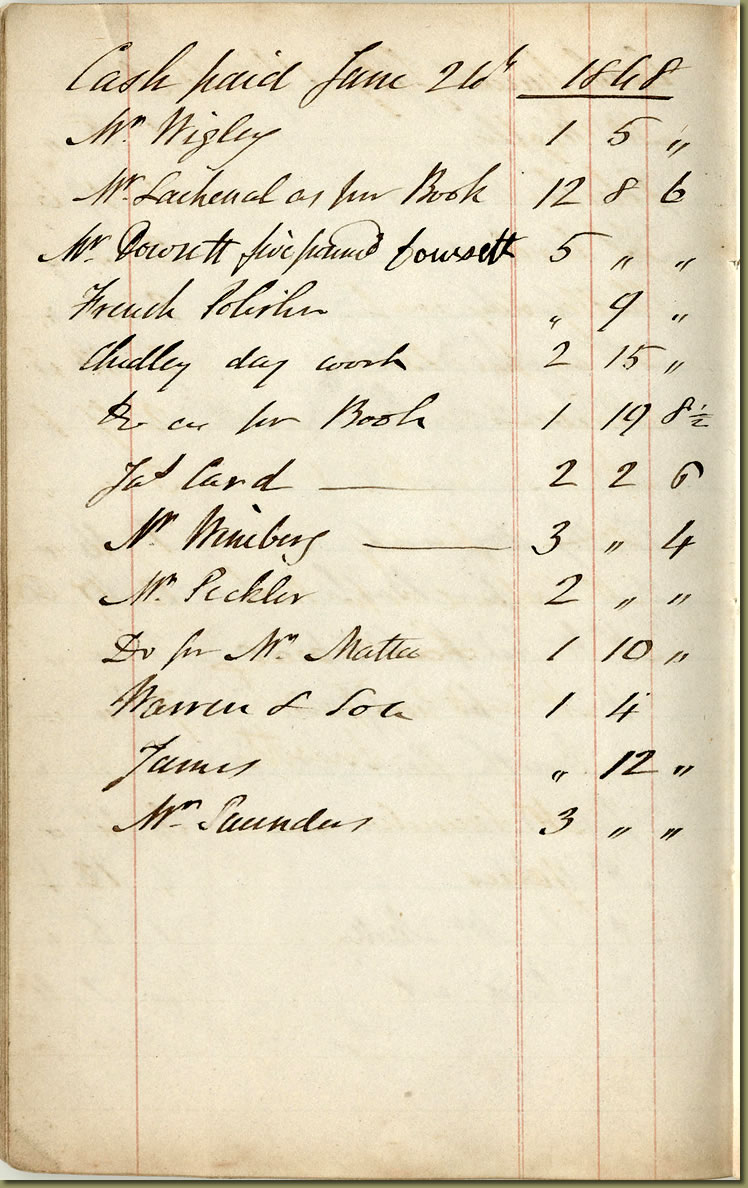 Cash paid June 26th 1868
Mr Wigley 1 5 "
Mr Lachenal as per Book 12 8 6
Mr Dowsett five pound Dowsett 5 " "
French Polisher " 9 "
Chidley day work 2 15 "
Do as per Book 1 19 8½
Jas Card — 2 2 6
Mr — 3 " 4
Mr Peckler 2 " "
Do for Mr 1 10 "
Warren & Son 1 4
James " 12 "
Mrs Saunders 3 " "